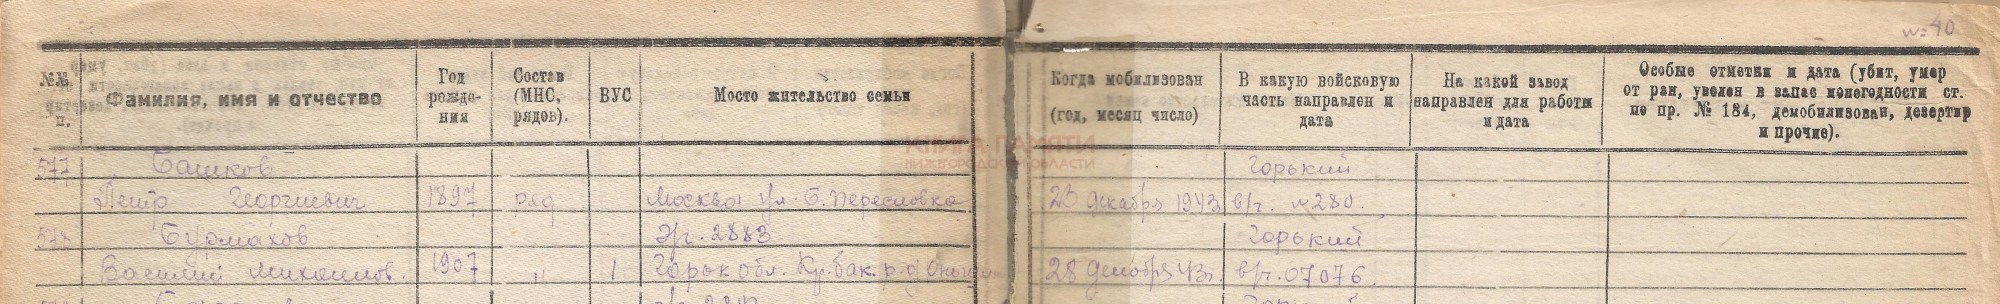 № 40
№№ п. п.
Фамилия, имя и отчество
Год рожде-ния
Состав (МНС, рядов).
ВУС
Место жительство семьи
Когда мобилизован (год, месяц число)
В какую войсковую часть направлен и дата
На какой завод направлен для работы и дата
Особые отметки и дата (убит, умер от ран, уволен в запас непогодности ст. по пр. № 184, демобилизован, дезертир и прочие).
КНИГА ПАМЯТИ
НИЖЕГОРОДСКОЙ ОБЛАСТИ
577 Башков Горький
Петр Георгиевич 1897 ряд Москва ул. Б. Переславка 23 декабря 1943 в/ч. № 280.
578 Бурмахов 2883 Горький
Василий Михайлов. 1907 " 1 Горьк обл. Кр. бак. р-д 28 декабря 43г. в/ч. 07076